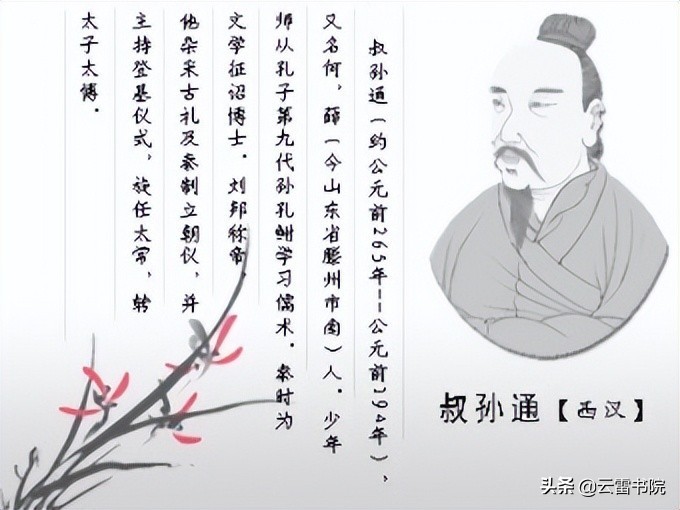 叔孙通（约公元前265年--公元前194年），
又名何，薛（今山东省滕州市南）人。少年
师从孔子第九代孙孔鲋学习儒术。秦时为
文学征诏博士。刘邦称帝，
他杂采古礼及秦制立朝仪，并
主持登基仪式，旋任太常，转
太子太傅。
叔孙通【西汉】
头条 @云雷书院